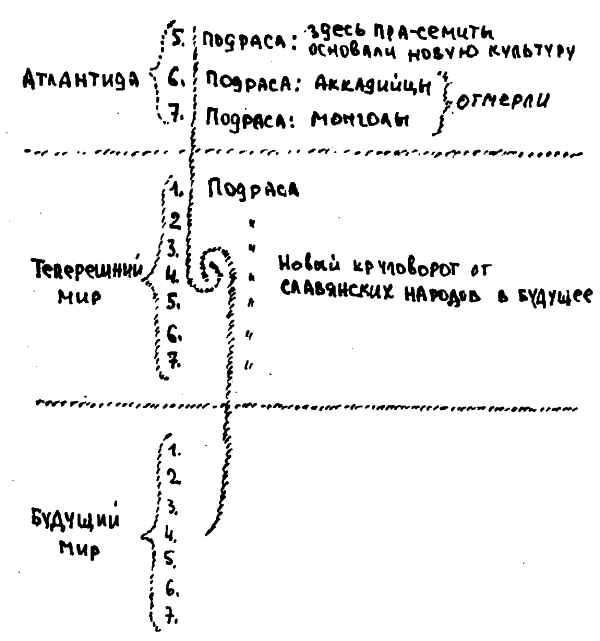 5. Подраса: здесь пра-семиты
основали новую культуру
Атлантида
6. Подраса: Аккадийцы
отмерли
7. Подраса: монголы
1. Подраса
2 "
3. "
Теперешний
мир
4. "
Новый круговорот от
славянских народов в будущее
5. "
6. "
7. "
1.
2
3.
Будущий
мир
4.
5.
6.
7.